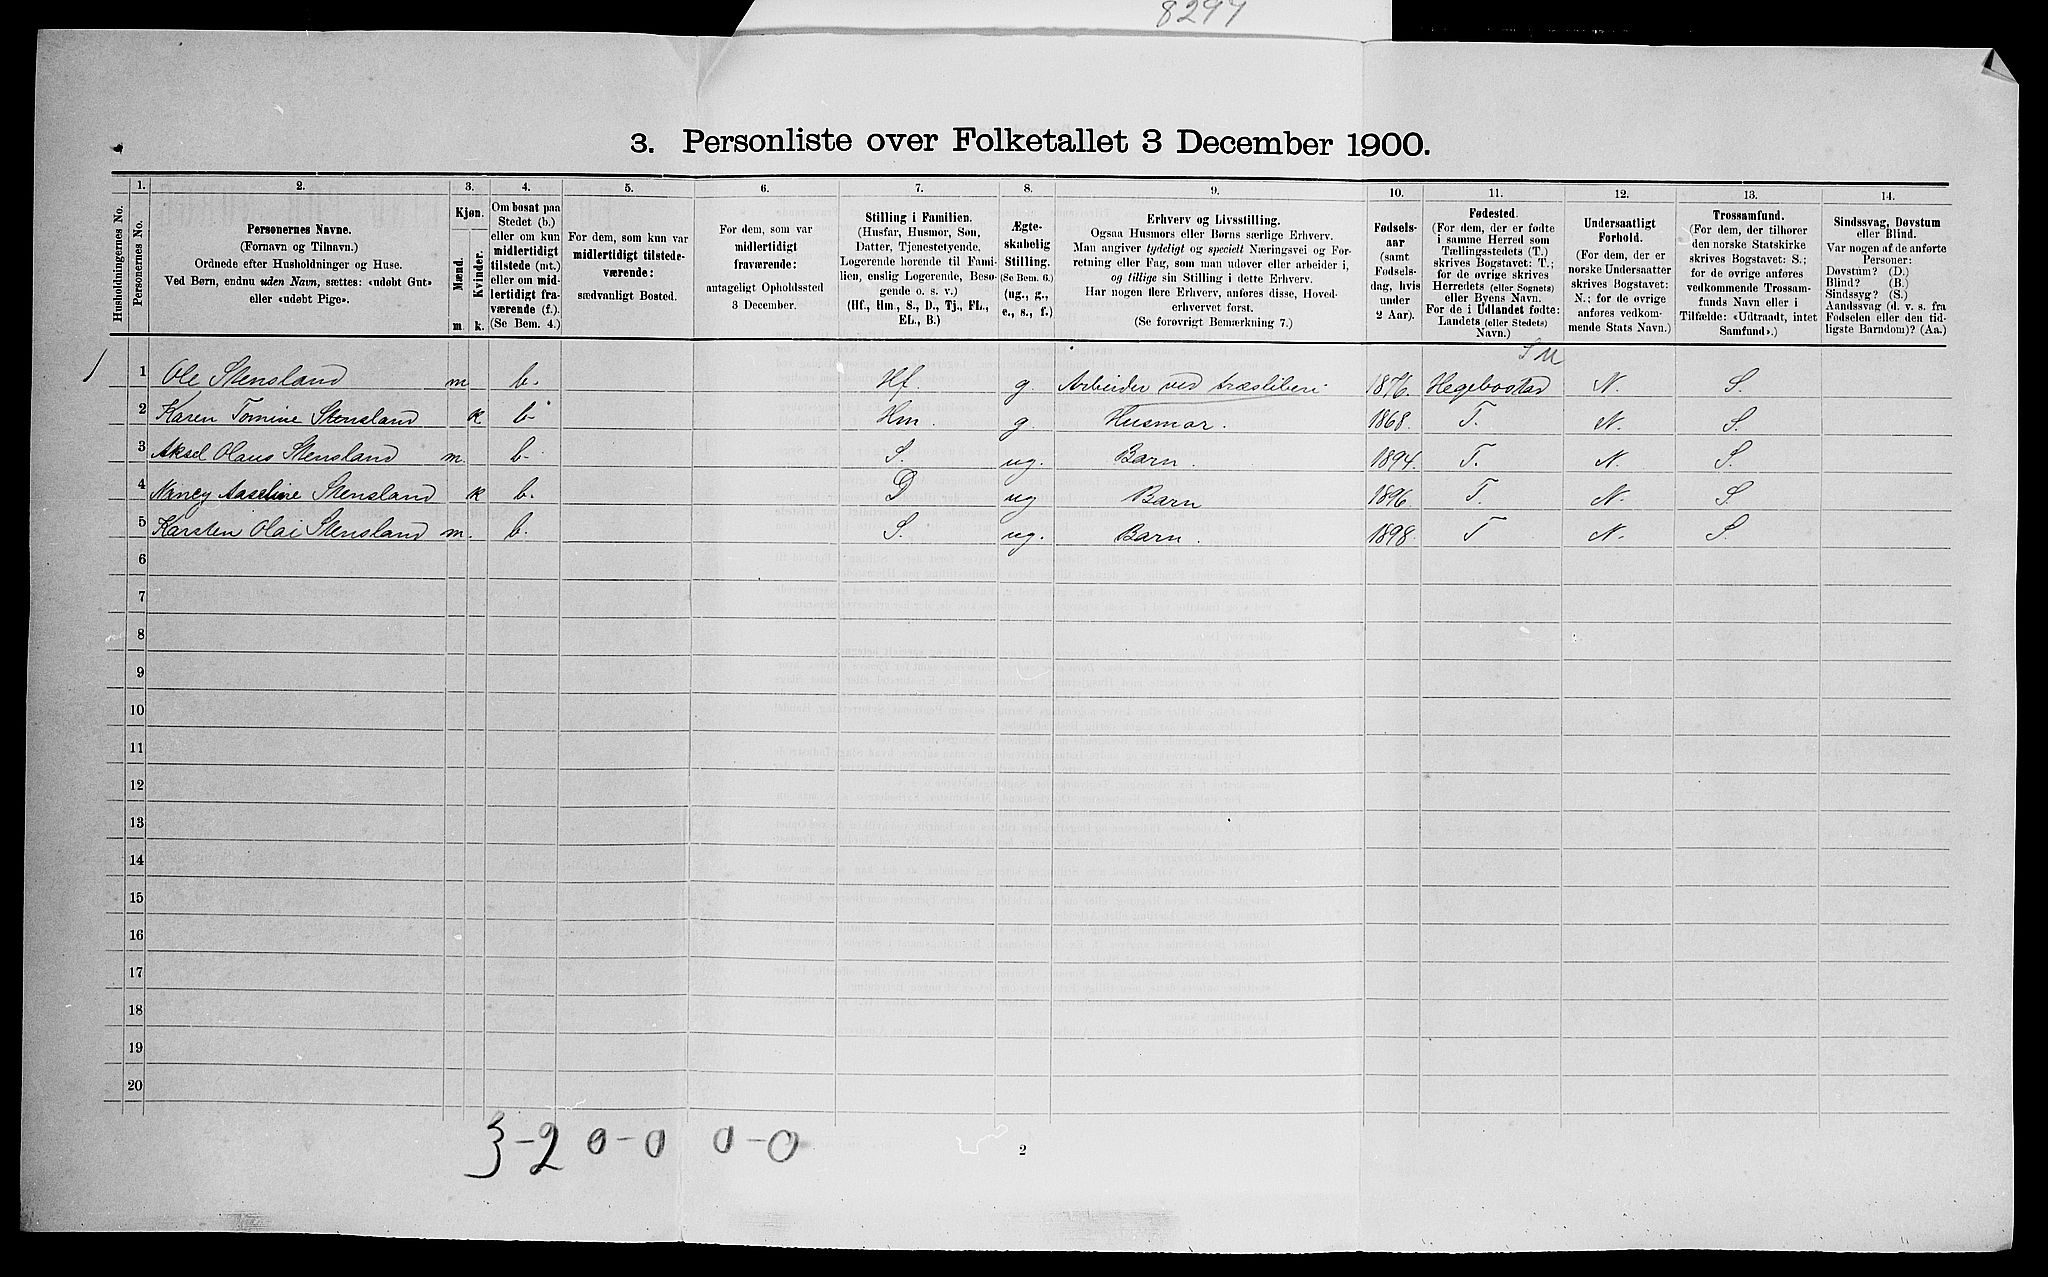 8294
3. Personliste over Folketallet 3 December 1900.
Husholdningernes No.
1.
Personernes No.
2.
Personernes Navne.
(Fornavn og Tilnavn.)
Ordnede efter Husholdninger og Huse.
Ved Børn, endnu uden Navn, sættes: «udøbt Gut»
eller «udøbt Pige».
3.
Kjøn.
Mænd.
Kvinder.
m. k.
4.
Om bosat paa
Stedet (b.)
eller om kun
midlertidigt
tilstede (mt.)
eller om mid-
lertidigt fra-
værende (f.).
(Se Bem. 4.)
5.
For dem, som kun var
midlertidigt tilstede-
værende:
sædvanligt Bosted.
6.
For dem, som var
midlertidigt
fraværende:
antageligt Opholdssted
3 December.
7.
Stilling i Familien.
(Husfar, Husmor, Søn,
Datter, Tjenestetyende,
Logerende hørende til Fami-
lien, enslig Logerende, Besø-
gende o. s. v.)
(Hf., Hm., S., D., Tj., FL.,
EL., B.)
8.
Ægte-
skabelig
Stilling.
(Se Bem. 6.)
(ug., g.,
e., s., f.)
9.
Erhverv og Livsstilling.
Ogsaa Husmors eller Børns særlige Erhverv.
Man angiver tydeligt og specielt Næringsvei og For-
retning eller Fag, som man udøver eller arbeider i,
og tillige sin Stilling i dette Erhverv.
Har nogen flere Erhverv, anføres disse, Hoved-
erhvervet først.
(Se forøvrigt Bemærkning 7.)
10.
Fødsels-
aar
(samt
Fødsels-
dag, hvis
under
2 Aar).
11.
Fødested.
(For dem, der er fødte
i samme Herred som
Tællingsstedets (T.)
skrives Bogstavet: T.;
for de øvrige skrives
Herredets (eller Sognets)
eller Byens Navn.
For de i Udlandet fødte:
Landets (eller Stedets)
Navn.)
12.
Undersaatligt
Forhold.
(For dem, der er
norske Undersaatter
skrives Bogstavet:
N.; for de øvrige
anføres vedkom-
mende Stats Navn.)
13.
Trossamfund.
(For dem, der tilhører
den norske Statskirke
skrives Bogstavet: S.;
for de øvrige anføres
vedkommende Trossam-
funds Navn eller i
Tilfælde: «Udtraadt, intet
Samfund».)
14.
Sindssvag, Døvstum
eller Blind.
Var nogen af de anførte
Personer:
Døvstum? (D.)
Blind? (B.)
Sindssyg? (S.)
Aandssvag (d. v. s. fra
Fødselen eller den tid-
ligste Barndom)? (Aa.)
1 1 Ole Stensland m b. Hf. g. Arbeider ved træsliberi 1876. Hegebostad N. S.
2 Karen Tomine Stensland k b Hm. g. Husmor. 1868. T. N. S.
3 Aksel Olaus Stensland m. b. S. ug. Barn. 1894. T. N. S.
4 Nancy Aaseline Stensland k b. D ug Barn 1896. T. N. S.
5 Karsten Olai Stensland m. b. S. ug. Barn. 1898. T N. S.
6
7
8
9
10
11
12
13
14
15
16
17
18
19
20
3-2 0-0 0-0
2